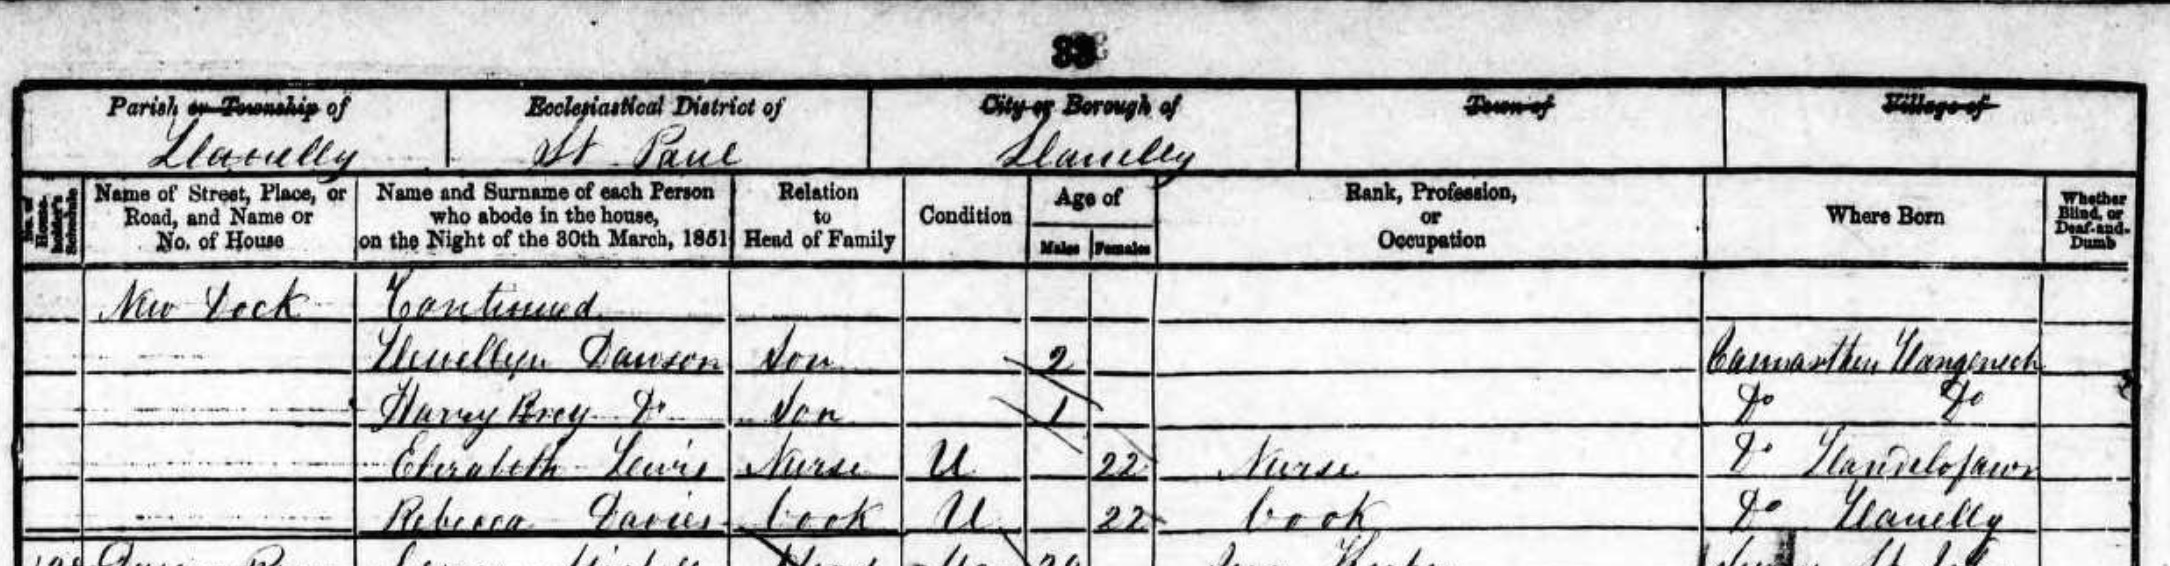 33
Parish or Township of
Llanelly
Ecclesiastical District of
St Paul
City or Borough of
Llanelly
Town of
Village of
No. of House-holder's Schedule
Name of Street, Place, or Road, and Name or No. of House
Name and Surname of each Person who abode in the house, on the Night of the 30th March, 1851
Relation to Head of Family
Condition
Age of
Males Females
Rank, Profession, or Occupation
Where Born
Whether Blind, or Deaf-and-Dumb
New Dock Continued
Llewellyn Dawson Son 2 Carmarthen Llangennech
Harry Brey Do Son 1 Do Do
Elizabeth Lewis Nurse U 22 Nurse Do Llandilofawr
Rebecca Davies Cook U 22 Cook Do Llanelly
Head